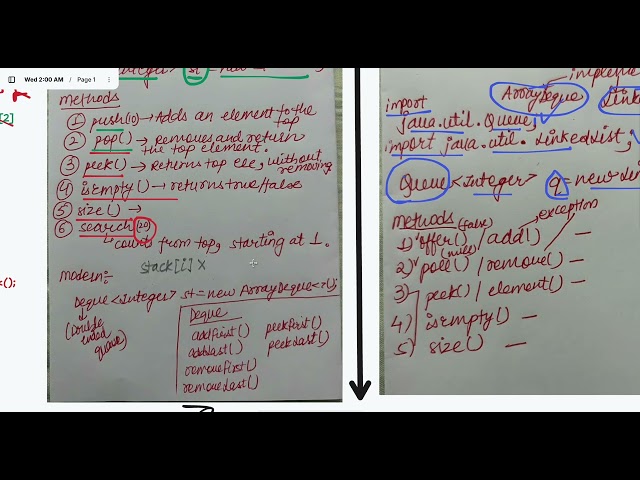 Wed 2:00 AM / Page 1
[2]
();
st = new
methods
① push(10) → Adds an element to the top
② pop() → Removes and return the top element.
③ peek() → Returns top ele, without removing
④ isEmpty() → returns true/false
⑤ size() →
⑥ search(20)
↳ counts from top, starting at 1.
stack[i] X
modern:-
Deque <Integer> st = new ArrayDeque<>();
(Double ended queue)
Deque
addFirst() peekFirst()
addLast() peekLast()
removeFirst()
removeLast()
impleme
ArrayDeque Linked
import java.util.Queue;
import java.util.LinkedList;
Queue <Integer> q = new Lin
methods (false) exception
1) offer() / add() —
(null)
2) poll() / remove() —
3) peek() / element() —
4) isEmpty() —
5) size() —